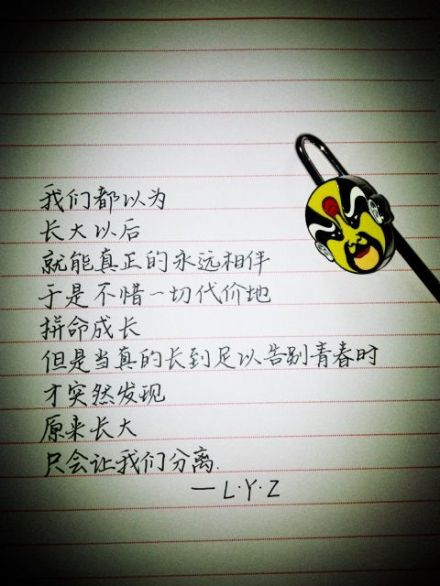 我们都以为
长大以后
就能真正的永远相伴
于是不惜一切代价地
拼命成长
但是当真的长到足以告别青春时
才突然发现
原来长大
只会让我们分离.
— L·Y·Z